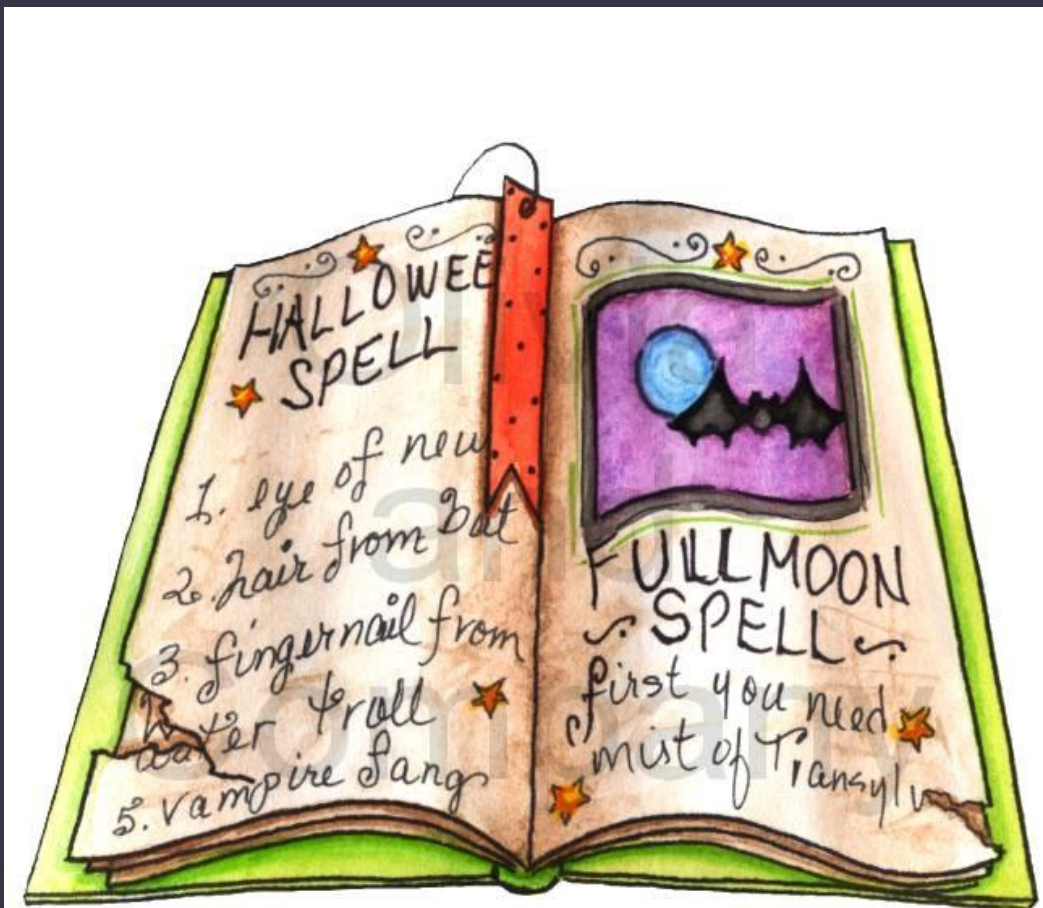 HALLOWEE
SPELL
1. eye of new
2. hair from Bat
3. fingernail from
water troll
5. vampire fang
FULLMOON
SPELL
first you need
mist of Transylv
Olivia
and
Company